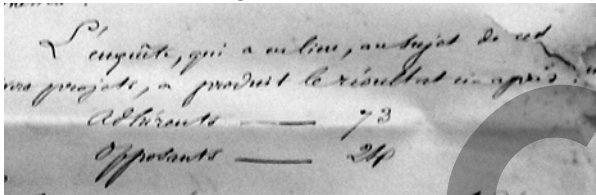 L'enquête, qui a eu lieu, au sujet de cet
projets, a produit le résultat ci-après :
Adhérents — 73
Opposants —